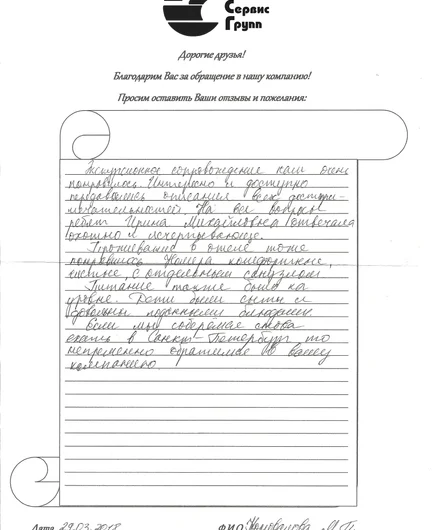 Сервис
Групп
Дорогие друзья!
Благодарим Вас за обращение в нашу компанию!
Просим оставить Ваши отзывы и пожелания:
Экскурсионное сопровождение нам очень
понравилось. Интересно и доступно
передавались описания всех достопри-
мечательностей. На все вопросы
ребят Ирина Михайловна отвечала
охотно и исчерпывающе.
Проживание в отеле тоже
понравилось. Номера комфортные,
чистые, с отдельным санузлом
Питание также было на
уровне. Дети были сыты и
довольны поданными блюдами.
Если мы соберёмся снова
ехать в Санкт-Петербург, то
непременно обратимся в вашу
компанию.
Дата 29.03.2018
Ф.И.О.